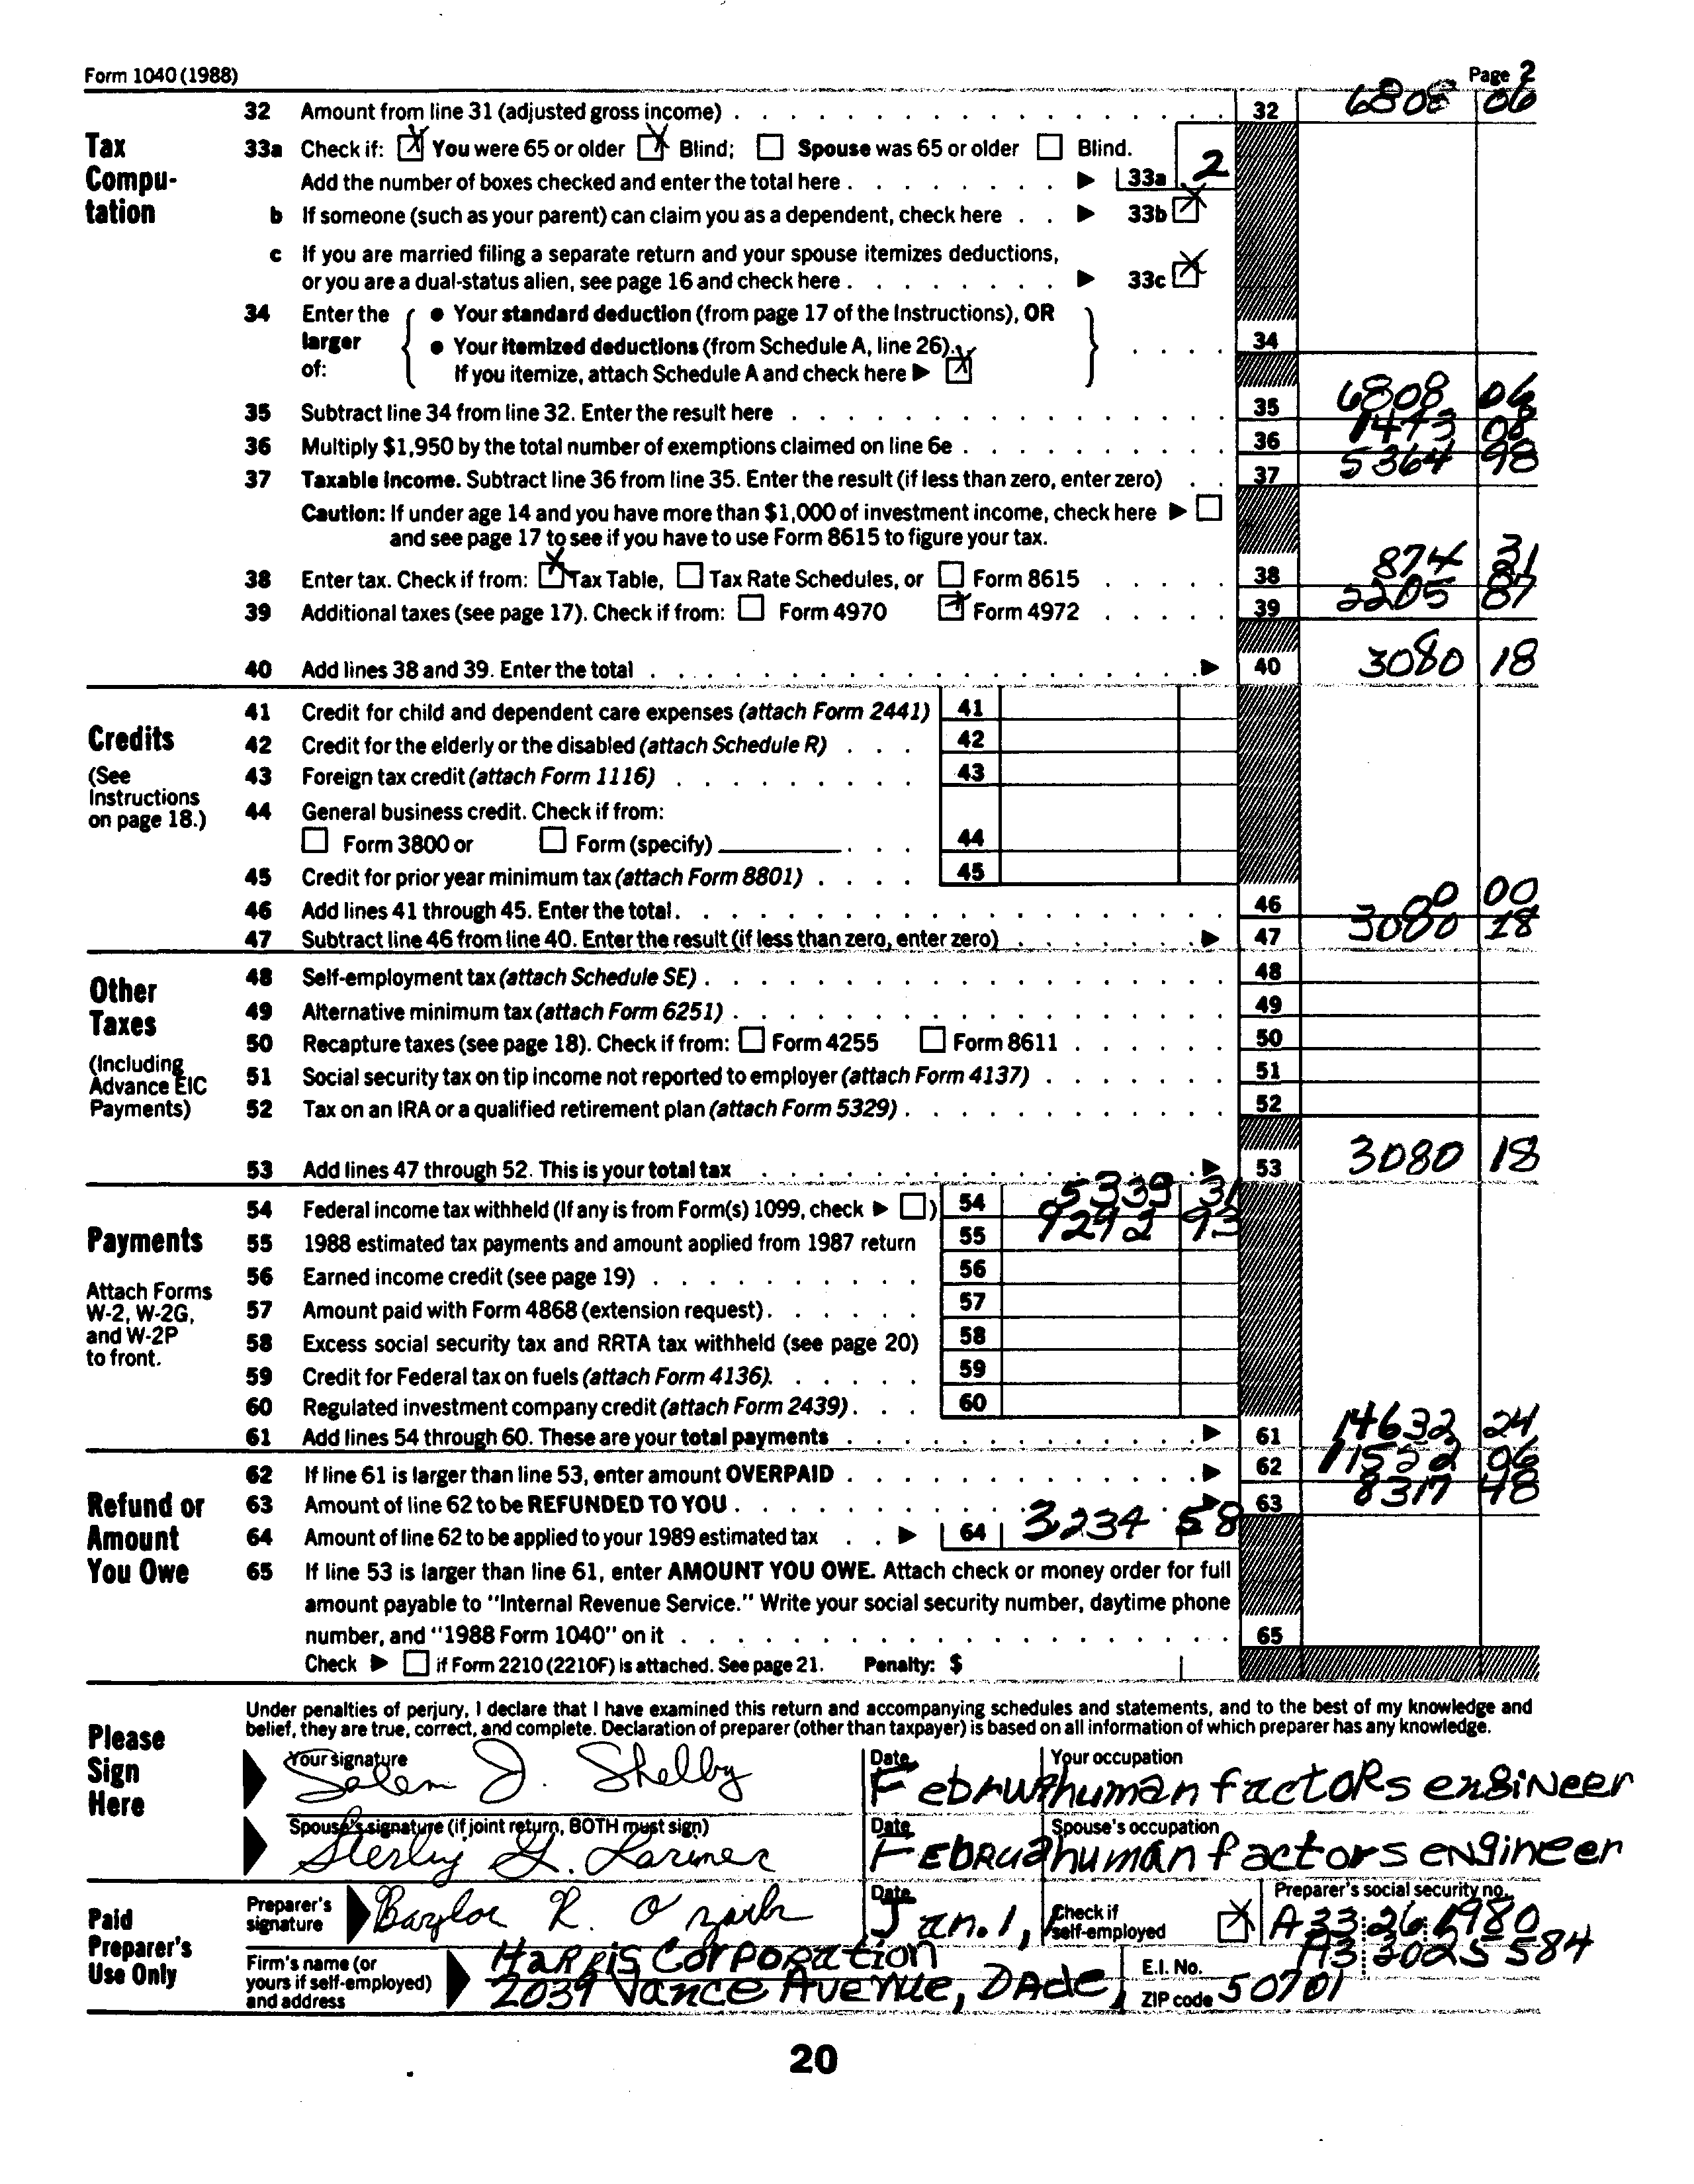 Form 1040 (1988) Page 2
32 Amount from line 31 (adjusted gross income) 32 6808 06
Tax Computation
33a Check if: X You were 65 or older X Blind; Spouse was 65 or older Blind.
Add the number of boxes checked and enter the total here 33a 2
b If someone (such as your parent) can claim you as a dependent, check here 33b X
c If you are married filing a separate return and your spouse itemizes deductions,
or you are a dual-status alien, see page 16 and check here 33c X
34 Enter the larger of:
• Your standard deduction (from page 17 of the Instructions), OR
• Your itemized deductions (from Schedule A, line 26). 34
If you itemize, attach Schedule A and check here X
35 Subtract line 34 from line 32. Enter the result here 35 6808 06
36 Multiply $1,950 by the total number of exemptions claimed on line 6e 36 1443 08
37 Taxable income. Subtract line 36 from line 35. Enter the result (if less than zero, enter zero) 37 5364 98
Caution: If under age 14 and you have more than $1,000 of investment income, check here
and see page 17 to see if you have to use Form 8615 to figure your tax.
38 Enter tax. Check if from: X Tax Table, Tax Rate Schedules, or Form 8615 38 874 31
39 Additional taxes (see page 17). Check if from: Form 4970 X Form 4972 39 2205 87
40 Add lines 38 and 39. Enter the total 40 3080 18
Credits
(See Instructions on page 18.)
41 Credit for child and dependent care expenses (attach Form 2441) 41
42 Credit for the elderly or the disabled (attach Schedule R) 42
43 Foreign tax credit (attach Form 1116) 43
44 General business credit. Check if from:
Form 3800 or Form (specify) 44
45 Credit for prior year minimum tax (attach Form 8801) 45
46 Add lines 41 through 45. Enter the total 46 0 00
47 Subtract line 46 from line 40. Enter the result (if less than zero, enter zero) 47 3080 18
Other Taxes
(Including Advance EIC Payments)
48 Self-employment tax (attach Schedule SE) 48
49 Alternative minimum tax (attach Form 6251) 49
50 Recapture taxes (see page 18). Check if from: Form 4255 Form 8611 50
51 Social security tax on tip income not reported to employer (attach Form 4137) 51
52 Tax on an IRA or a qualified retirement plan (attach Form 5329) 52
53 Add lines 47 through 52. This is your total tax 53 3080 18
Payments
Attach Forms W-2, W-2G, and W-2P to front.
54 Federal income tax withheld (If any is from Form(s) 1099, check ) 54 5339 31
55 1988 estimated tax payments and amount applied from 1987 return 55 9292 93
56 Earned income credit (see page 19) 56
57 Amount paid with Form 4868 (extension request) 57
58 Excess social security tax and RRTA tax withheld (see page 20) 58
59 Credit for Federal tax on fuels (attach Form 4136) 59
60 Regulated investment company credit (attach Form 2439) 60
61 Add lines 54 through 60. These are your total payments 61 14632 24
Refund or Amount You Owe
62 If line 61 is larger than line 53, enter amount OVERPAID 62 11552 06
63 Amount of line 62 to be REFUNDED TO YOU 63 8317 48
64 Amount of line 62 to be applied to your 1989 estimated tax 64 3234 58
65 If line 53 is larger than line 61, enter AMOUNT YOU OWE. Attach check or money order for full
amount payable to "Internal Revenue Service." Write your social security number, daytime phone
number, and "1988 Form 1040" on it 65
Check if Form 2210 (2210F) is attached. See page 21. Penalty: $
Please Sign Here
Under penalties of perjury, I declare that I have examined this return and accompanying schedules and statements, and to the best of my knowledge and
belief, they are true, correct, and complete. Declaration of preparer (other than taxpayer) is based on all information of which preparer has any knowledge.
Your signature Salem J. Shelby Date Your occupation human factors engineer
Spouse's signature (if joint return, BOTH must sign) Date Spouse's occupation human factors engineer
Paid Preparer's Use Only
Preparer's signature Baylor R. Date Jan. 1, Check if self-employed X Preparer's social security no. A33 26 1980
Firm's name (or yours if self-employed) and address Harris Corporation E.I. No. A3 3025584
2039 Vance Avenue, Dade, ZIP code 50701
20